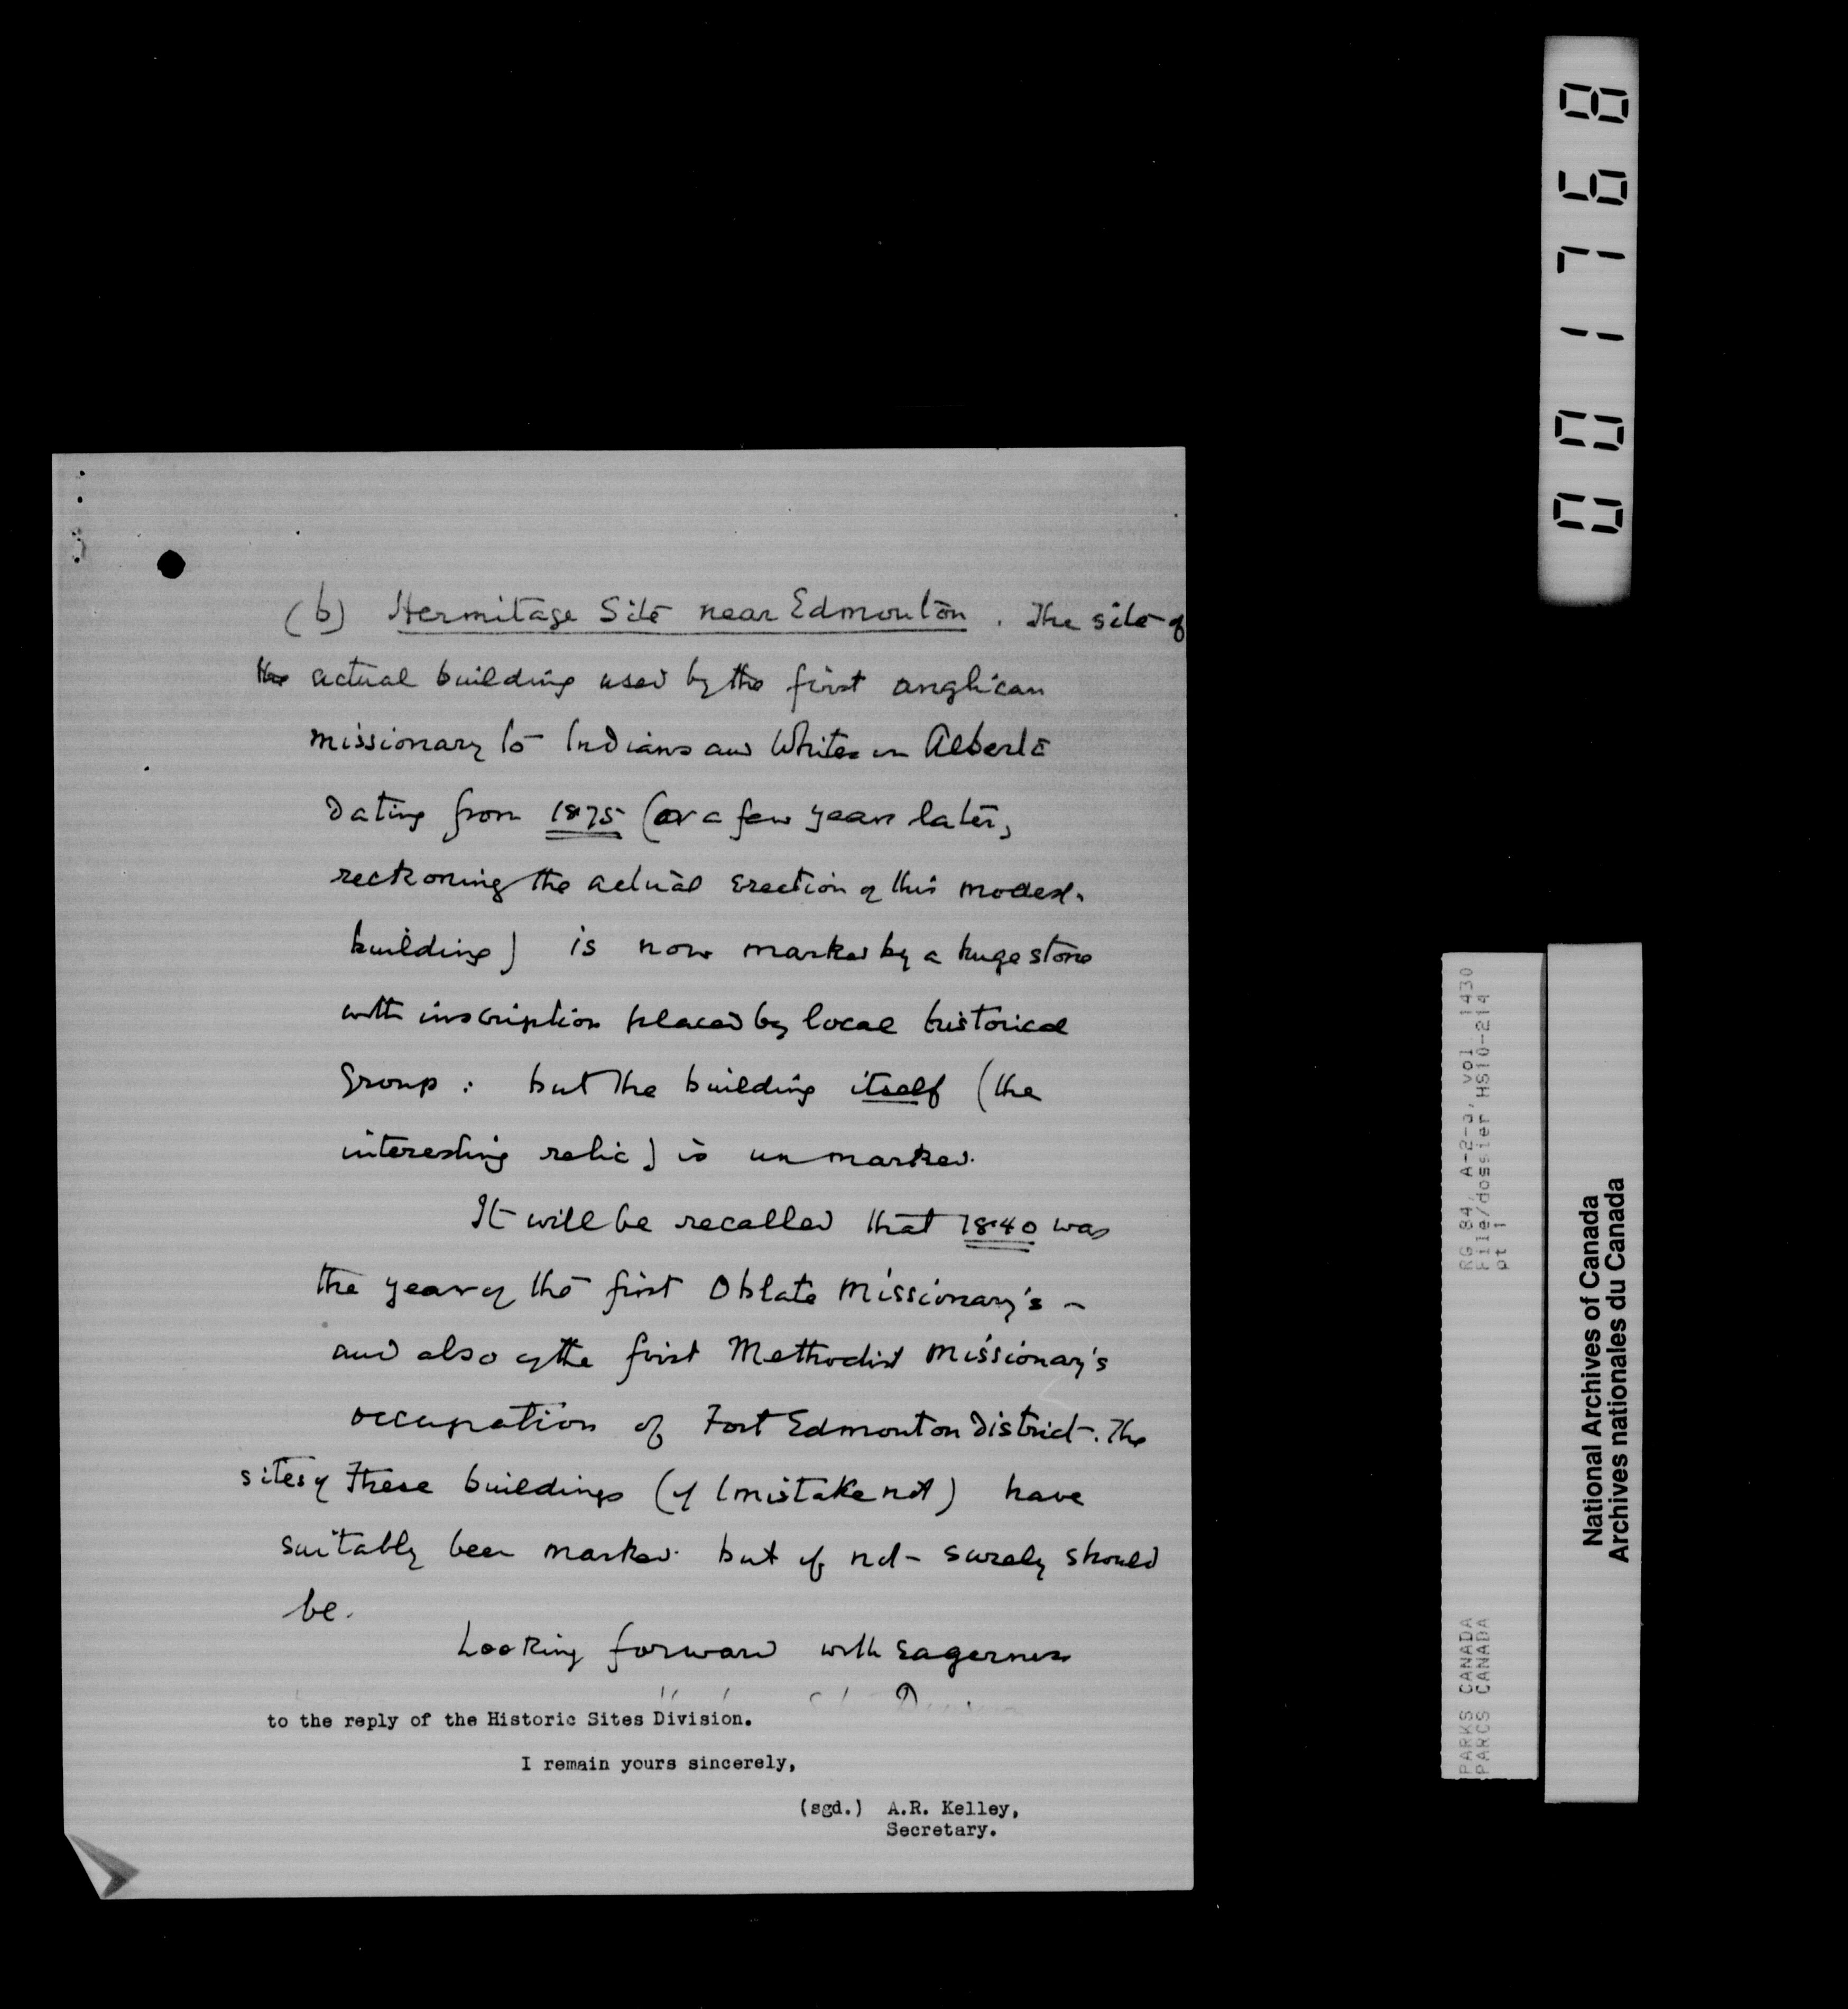 (b) Hermitage Site near Edmonton. The site of
the actual building used by the first Anglican
missionary to Indians and Whites in Alberta
Dating from 1875 (or a few years later,
reckoning the actual erection of this modest
building) is now marked by a huge stone
with inscription placed by local historical
group: but the building itself (the
interesting relic) is unmarked.
It will be recalled that 1840 was
the year of the first Oblate Missionary's -
and also of the first Methodist Missionary's
occupation of Fort Edmonton District. The
sites of these buildings (if I mistake not) have
suitably been marked. but if not - surely should
be.
Looking forward with eagerness
to the reply of the Historic Sites Division.
I remain yours sincerely,
(sgd.) A.R. Kelley,
Secretary.
001768
RG 84, A-2-a, vol 1430
File/dossier HS10-214
pt 1
PARKS CANADA
PARCS CANADA
National Archives of Canada
Archives nationales du Canada